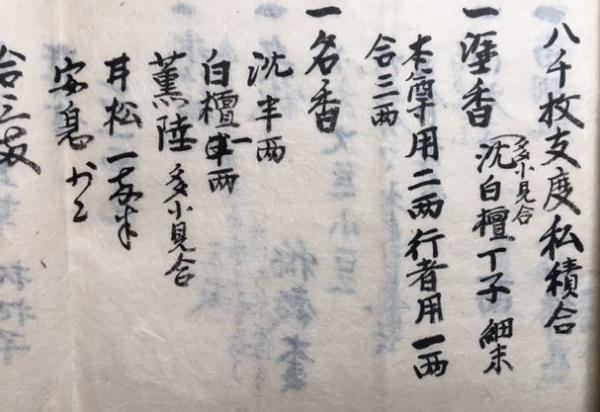 八千枚支度私積合
一塗香 沈白檀丁子 細末
多小見合
本尊用二两行者用一两
合三两
一名香
沈半两
白檀一两
薫陸 多小見合
甘松 一両半
安息 少々
合三両